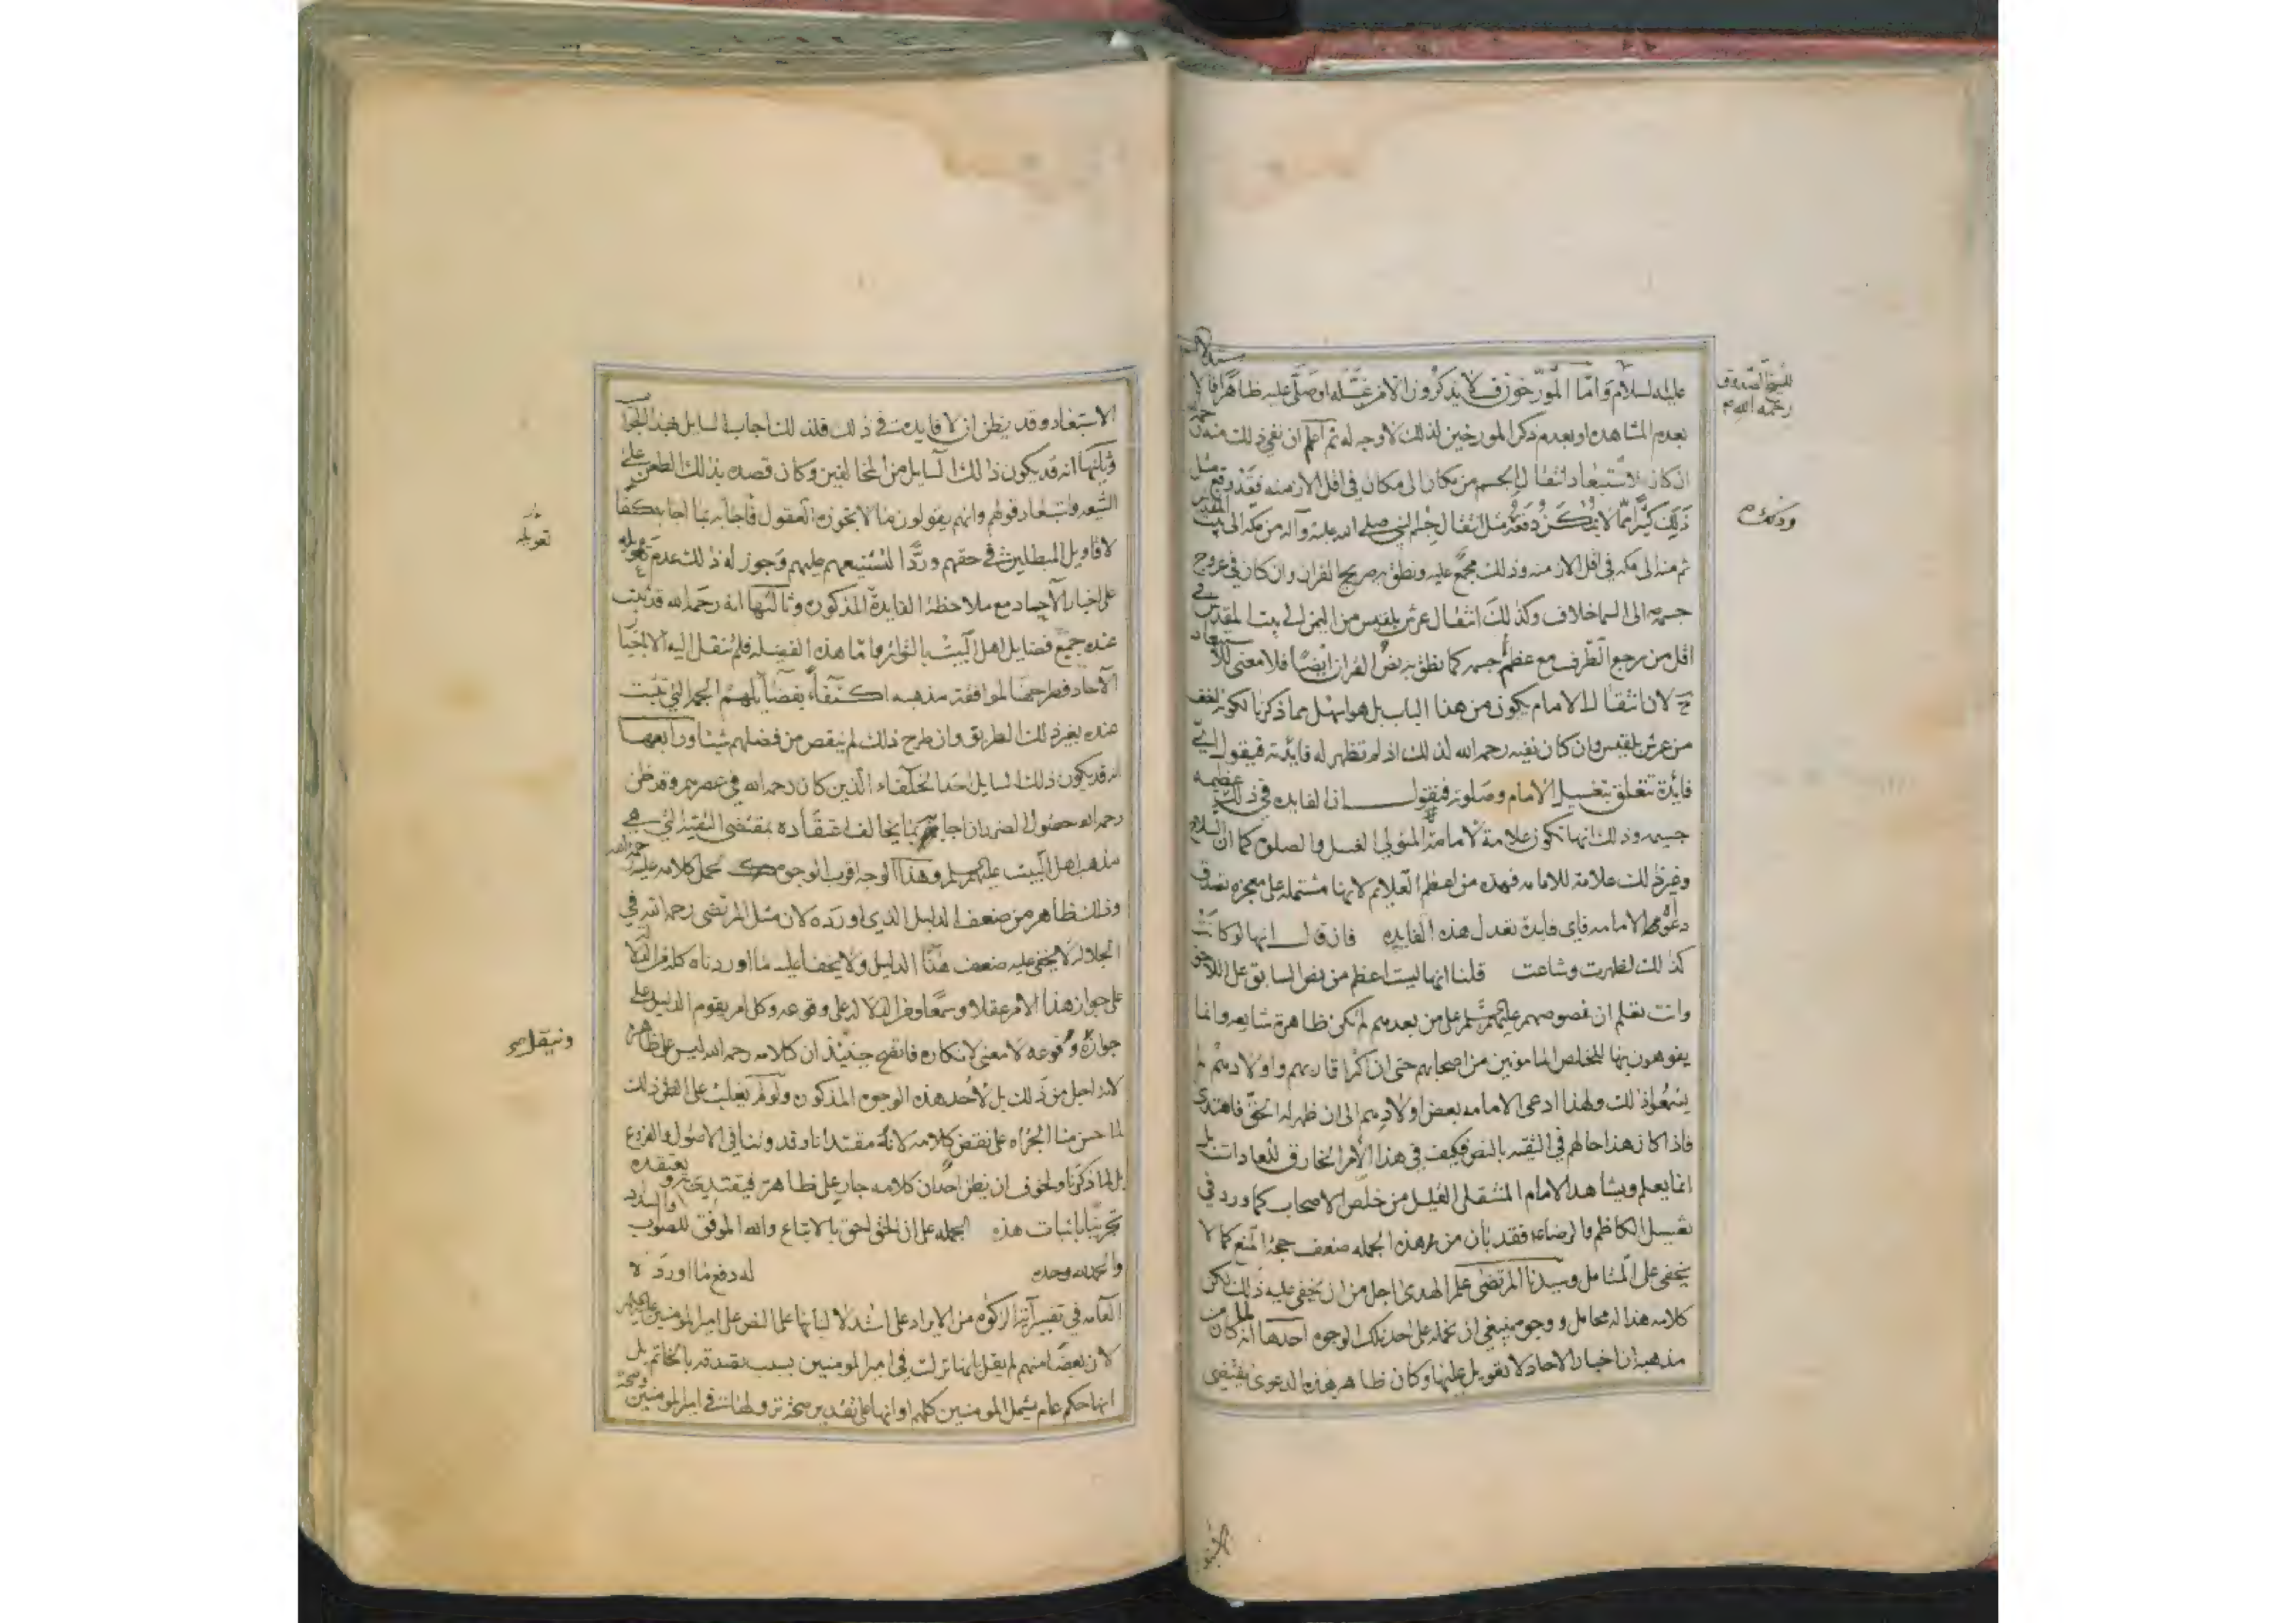 عليه السلام واما المورخون فلا يذكرون الامر غسله او صلى عليه ظاهرا فالاستدلال
بعدم المشاهده او بعدم ذكر المورخين لذلك لا وجه له ثم اعلم ان نفي ذلك منه رحمه
ان كان لاستبعاد انتقال الجسم من مكان الى مكان في اقل الازمنه فقد وقع مثل
ذلك كثيرا مما لا يمكن دفعه مثل انتقال جرم النبي صلى الله عليه وآله من مكه الى بيت المقدس
ثم منه الى مكه في اقل الازمنه وذلك مجمع عليه ونطق به صريح القران وان كان في عروج
جسمه الى السما خلاف وكذلك انتقال عرش بلقيس من اليمن الى بيت المقدس في
اقل من رجع الطرف مع عظم جسمه كما نطق به نص القران ايضا فلا معنى للاستبعاد
ح لان انتقال الامام يكون من هذا الباب بل هو اسهل مما ذكرنا لكونه اخف
من عرش بلقيس وان كان نفيه رحمه الله لذلك اذ لم تظهر له فايدته فيقول اي
فائدة تتعلق بتغسيل الامام وصلوته فنقول ان الفايده في ذلك عظيمه
جسيمه وذلك انها تكون علامة لامامة المتولي الغسل والصلوه كما ان السلاح
وغير ذلك علامة للامامه فهذه من اعظم العلايم لانها مشتمله على معجزه تصدق
دعواه الامامه فاي فايدة تعدل هذه الفايده فان قال انها لو كانت
كذلك لظهرت وشاعت قلنا انها ليست اعظم من نص السابق على اللاحق
وانت تعلم ان نصوصهم عليهم السلم على من بعدهم لم تكن ظاهرة شايعه وانما
يفوهون بها للمخلص المامونين من اصحابهم حتى ان اكثر اقاربهم واولادهم لم
يسمعوا ذلك ولهذا ادعى الامامه بعض اولادهم الى ان ظهر له الحق فاهتدى
فاذا كان هذا حالهم في التقيه بالنص فكيف في هذا الامر الخارق للعادات بل
انما يعلم ويشاهد الامام المنتقل القليل من خلص الاصحاب كما ورد في
تغسيل الكاظم والرضا ع فقد بان من هذه الجمله ضعف حجة المنع كما لا
يخفى على المتامل وسيدنا المرتضى علم الهدى اجل من ان يخفى عليه ذلك لكن
كلامه هذا له محامل ووجوه ينبغي ان نحمله على احد تلك الوجوه احدها انه لما كان من
مذهبه ان اخبار الاحاد لا تعويل عليها وكان ظاهر هذه الدعوى يقتضي
للشيخ الصدوق
رحمه الله
وذلك
الاستبعاد وقد يظن ان لا فايدت في ذلك فلذلك اجاب السايل بهذا الجواب
وثانيها انه قد يكون ذلك السايل من المخالفين وكان قصده بذلك الطعن على
الشيعه واستبعاد قولهم وانهم يقولون ما لا تجوزه العقول فاجابه بما اجاب كفا
لاقاويل المبطلين في حقهم وردا لتشنيعهم عليهم وجوز له ذلك عدم تعويله
على اخبار الآحاد مع ملاحظة الفايدة المذكوره وثالثها انه رحمه الله قد ثبت
عنده جميع فضايل اهل البيت بالتواتر واما هذه الفضيله فلم تنقل اليه الا باخبار
الآحاد فطرحها لموافقة مذهبه اكتفاء بفضايلهم الجمه التي تثبت
عنده بغير ذلك الطريق وان طرح ذلك لم ينقص من فضلهم شيئا ورابعها
انه قد يكون ذلك السايل احد الخلفاء الذين كان رحمه الله في عصرهم وقد ظن
رحمه الله حصول الضرر ان اجابهم بما يخالف اعتقاده بمقتضى التقيه التي هي
مذهب اهل البيت عليهم السلم وهذا الوجه اقرب الوجوه في محمل كلامه عليه رحمه الله
وذلك ظاهر من ضعف الدليل الذي اورده لان مثل المرتضى رحمه الله في
الجلاله لا يخفى عليه ضعف هذا الدليل ولا يخفا عليه ما اوردناه كله من الدلاله
على جواز هذا الامر عقلا وسمعا ومن الدلاله على وقوعه وكل امر يقوم الدليل على
جوازه ووقوعه لا معنى لانكاره فاتضح حينئذ ان كلامه رحمه الله ليس على ظاهره
لانه اجل من ذلك بل لاحد هذه الوجوه المذكوره ولو لم يغلب على الظن ذلك
لما حسن منا الجراه على نقض كلامه لانه مقتدانا وقدوتنا في الاصول والفروع
بل لما ذكرنا ولخوف ان يظن احد ان كلامه جار على ظاهره فيقتدي به ويعتقده
تحرينا باثبات هذه الجمله على ان الحق احق بالاتباع والله الموفق للصواب والسداد
والحمد لله وحده له دفع ما اورده
العامه في تفسير آية الزكوه من الايراد على استدلالنا بها على النص على امير المومنين عليه السلم
لان بعضا منهم لم يقل بانها نزلت في امير المومنين بسبب تصدقه بالخاتم بل
انها حكم عام يشمل المومنين كلهم او انها على تقدير صحة نزولها في امير المومنين
تعويله
وينقل